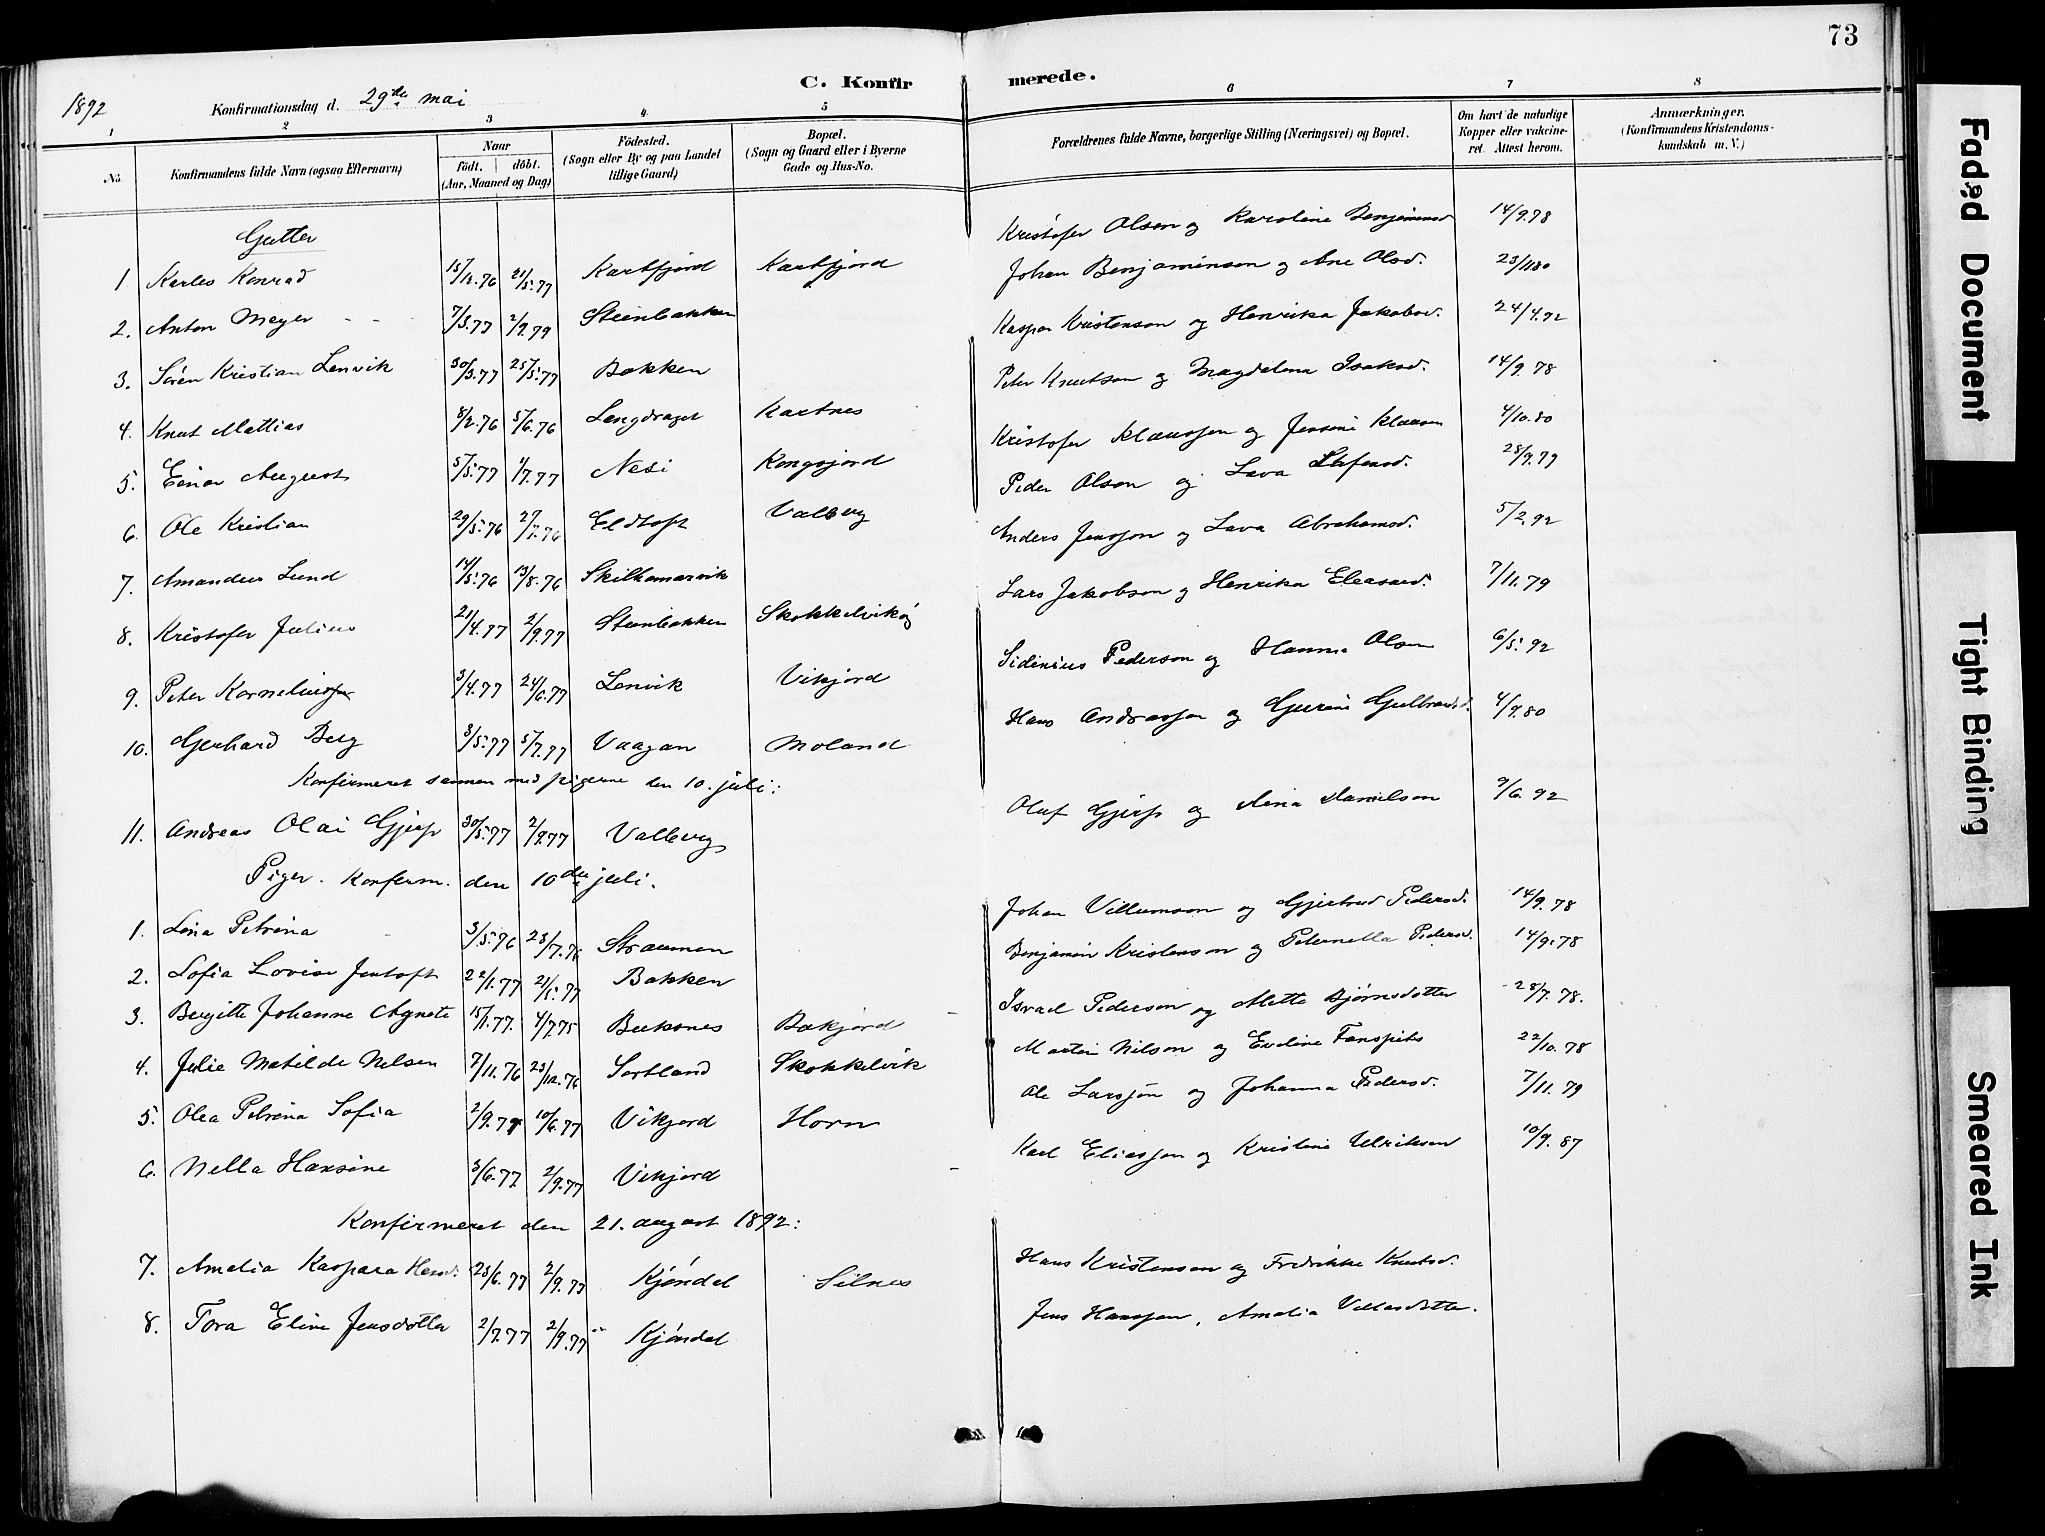 73
C. Konfirmerede.
1892 Konfirmationsdag d. 29de mai
1 2 3 4 5 6 7 8
No. Konfirmandens fulde Navn (ogsaa Efternavn) Naar födt. döbt. (Aar, Maaned og Dag) Födested. (Sogn eller By og paa Landet tillige Gaard) Bopæl. (Sogn og Gaard eller i Byerne Gade og Hus-No. Forældrenes fulde Navne, borgerlige Stilling (Næringsvei) og Bopæl. Om havt de naturlige Kopper eller vaccineret. Attest herom. Anmærkninger. (Konfirmandens Kristendomskundskab m. V.)
Gutter
1 Karles Konrad 15/12.76 21/5.77 Kartfjord Kartfjord Kristofer Olsen og Karoline Benjaminsd 14/9.78
2. Anton Meyer - - 7/3.77 2/9.79 Steinbakken Johan Benjaminson og Ane Olsd. 23/11 80
3. Sören Kristian Lenvik 30/3.77 25/5.77 Bakken Kaspar Kristenson og Henrika Jakobsd. 24/4.92
4. Knut Mattias 8/2.76 5/6.76 Langdraget Kartnes Peter Knutson og Magdalena Isaksd. 14/9.78
5. Einar August 5/5.77 1/7.77 Nesi Kongsjord Kristofer Klaussen og Jensine Klausen 4/10.80
6. Ole Kristian 29/5.76 27/7.76 Eldtoft Valberg Peder Olson og Lava 28/9.79
7. Amandus Lund 14/5.76 13/8.76 Skilkamarvik Anders Jensson og Lava Abrahamsd. 5/2.92
8. Kristofer Julius 21/4.77 2/9.77 Steinbakken Skokkelvik Lars Jakobson og Henrika Eleasard. 7/11.79
9. Peter Korneliussen 3/4.77 24/6.77 Lenvik Vikjord Sidinius Pederson og Hanna Olsen 6/5.92
10. Gerhard Berg 3/5.77 5/7.77 Vaagan Moland Hans Andrassen og Gurine Gulbrands. 4/9.80
Konfirmeret sammen med pigerne den 10. juli:
11. Andreas Olai Gjerp 30/5.77 2/9.77 Valberg Oluf Gjerp og Danielson 9/6.92
Piger. Konferm. den 10de juli.
1. Lina Petrina 3/5.76 23/7.76 Straumen Johan Villumson og Gjertrud Pedersd. 14/9.78
2. Sofia Lovise Jentoft 22/1.77 21/5.77 Bakken Benjamin Kristenson og Peternella Pedersd. 14/9.78
3. Bergitte Johanne Agnete 15/1.77. 4/7.75 Buksnes Bakjord Israel Pederson og Mette Bjørnsdotter 28/7.78.
4. Julie Matilde Nilsen 7/11.76 23/12.76 Sortland Skokkelvik Martin Nilson og Eveline 22/10.78
5. Olea Petrina Sofia 2/9.77 10/6.77 Vikjord Horn Ole Larsson og Johanna Pedersd. 7/11.79
6. Nella Hansine 3/6.77. 2/9.77 Vikjord Karl Eliasson og Kristine Ulriksen 10/9.87
Konfirmeret den 21. august 1892:
7. Amalia Kaspara Hansd. 28/6.77 2/9.77 Kjøndal Silnes Hans Kristenson og Fredrikke Knutsd.
8. Tora Eline Jensdotter 2/7.77 2/9.77 Kjøndal Jens Hanssen, Amalia Villasdotter.
Faded Document
Tight Binding
Smeared Ink